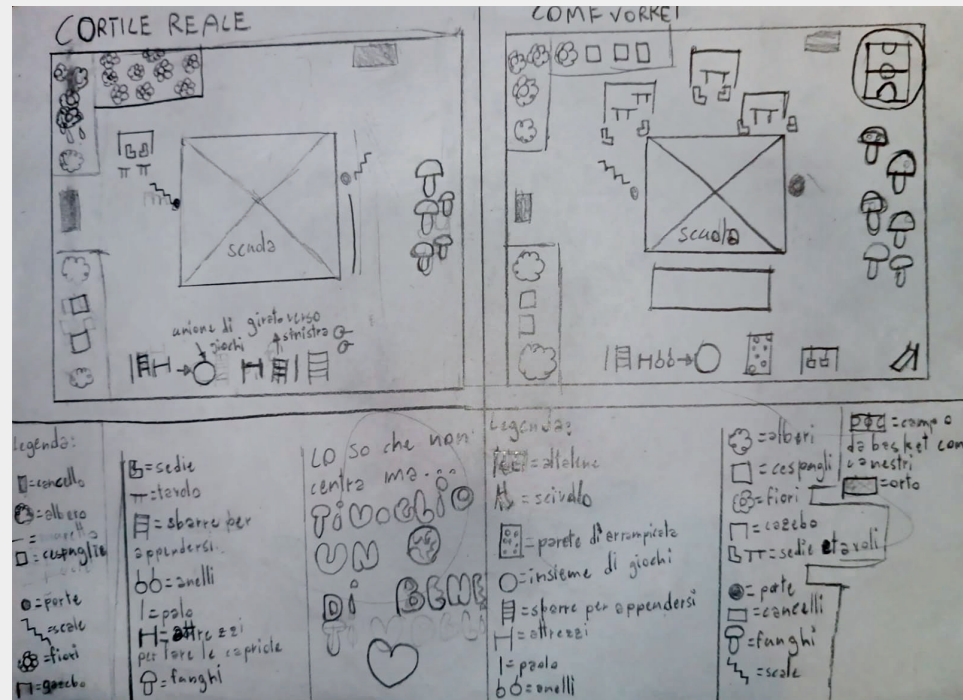 CORTILE REALE
scuola
unione di
giochi
girato verso
sinistra
COME VORREI
scuola
Legenda:
=cancello
=albero
=cespuglio
=porte
=scale
=fiori
=gazebo
=sedie
=tavolo
=sbarre per
appendersi
=anelli
=palo
=attrezzi
per fare le capriole
=funghi
LO SO che non
centra ma...
Ti VOGLIO
UN
Di BENE
Legenda:
=altalene
=scivolo
=parete d'arrampicata
=insieme di giochi
=sbarre per appendersi
=attrezzi
=paolo
=anelli
=alberi
=cespugli
=fiori
=gazebo
=sedie e tavoli
=porte
=cancelli
=funghi
=scale
=campo
da basket con
canestri
=orto